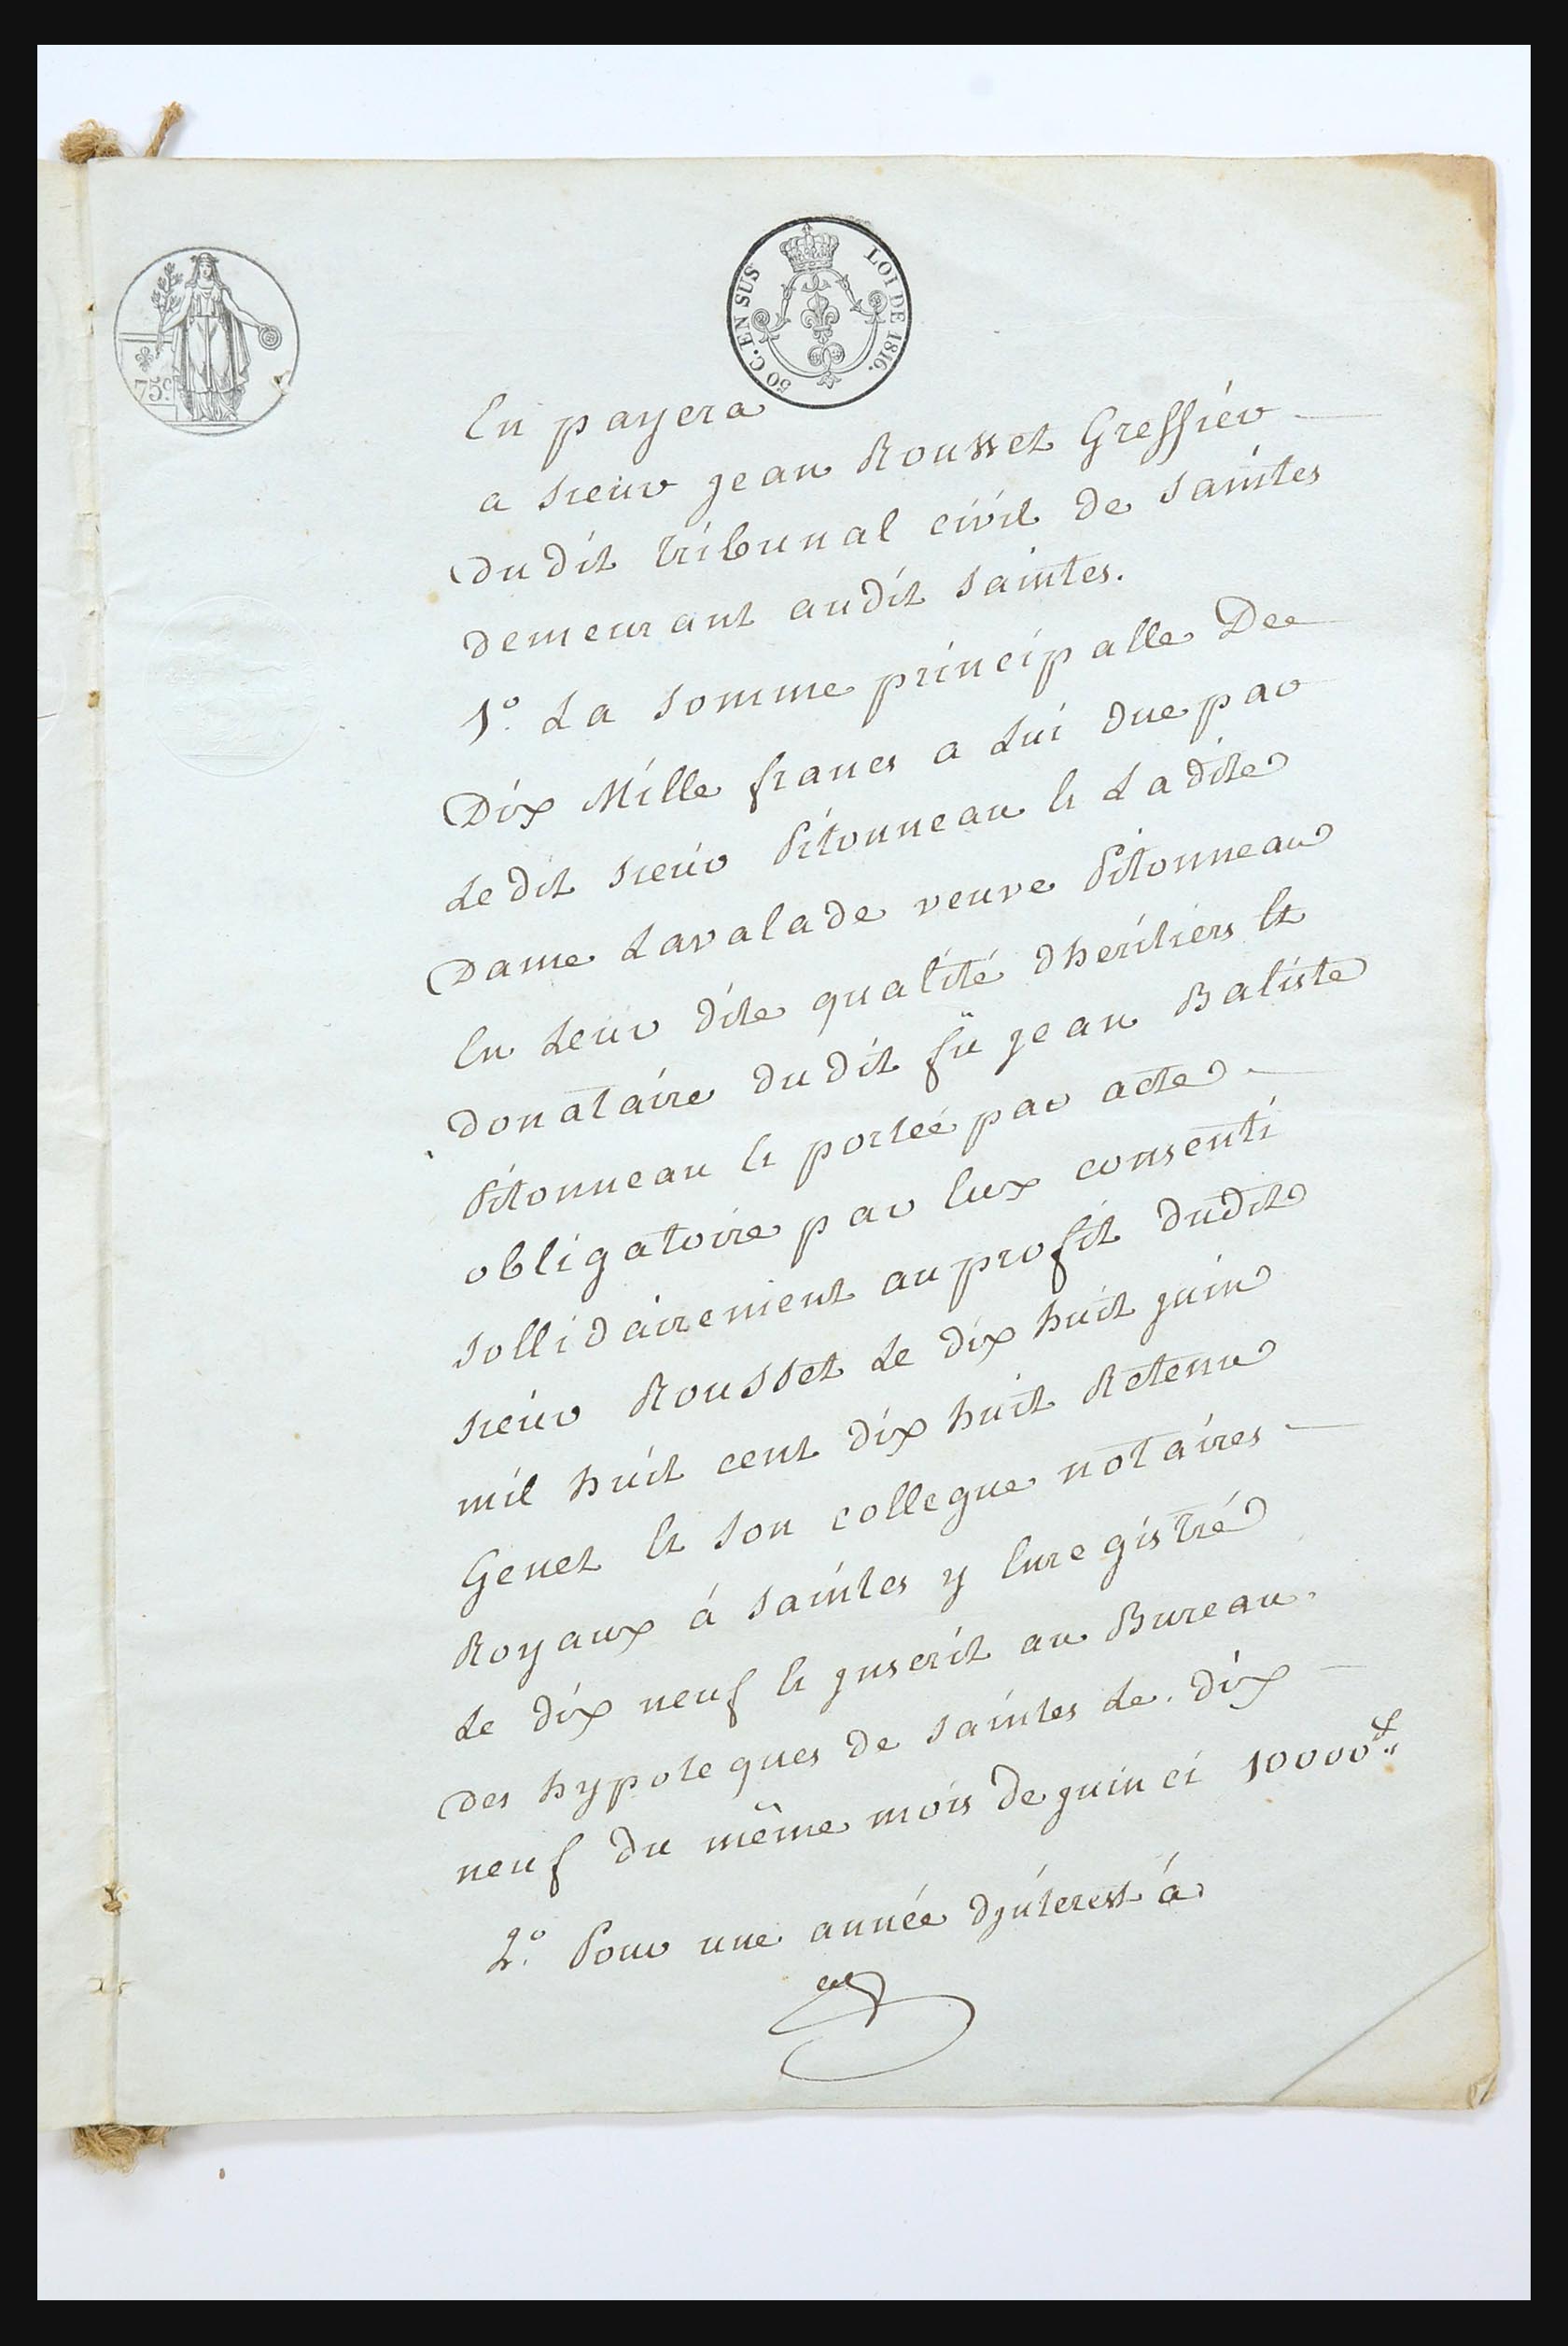 75c.
50 C. EN SUS LOI DE 1816.
En payera
a sieur jean Rousset Greffier
dudit tribunal civil de saintes
demeurant audit saintes.
1° La somme principalle De
Dix Mille francs a Lui due par
Ledit sieur Pitonneau Et Ladite
Dame Lavalade veuve Pitonneau
En Leur dite qualité dheritiers Et
donataire dudit fü jean Batiste
Pitonneau Et portée par acte
obligatoire par Eux consenti
sollidairement au profit dudit
sieur Rousset Le dix huit juin
mil huit cent dix huit Retenu
Genet Et son collegue notaires
Royaux á saintes y Enregistré
Le dix neuf Et jnscrit au Bureau
des hypoteques de saintes Le dix
neuf du même mois de juin ci 10000f..
2° Pour une année djnterest á